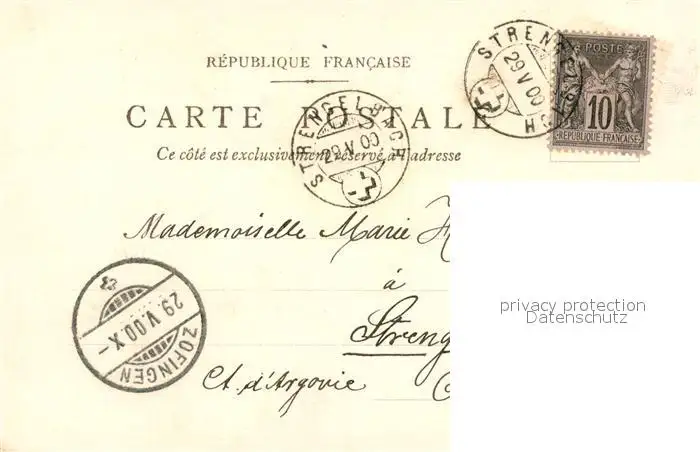 RÉPUBLIQUE FRANÇAISE
CARTE POSTALE
Ce côté est exclusivement réservé à l'adresse
STRENGELBACH
29.V.00
STRENGELBACH
29.V.00
POSTE
10
RÉPUBLIQUE FRANÇAISE
Mademoiselle Marie H
à
Streng
Ct. d'Argovie
29.V.00.X-
ZOFINGEN
privacy protection
Datenschutz